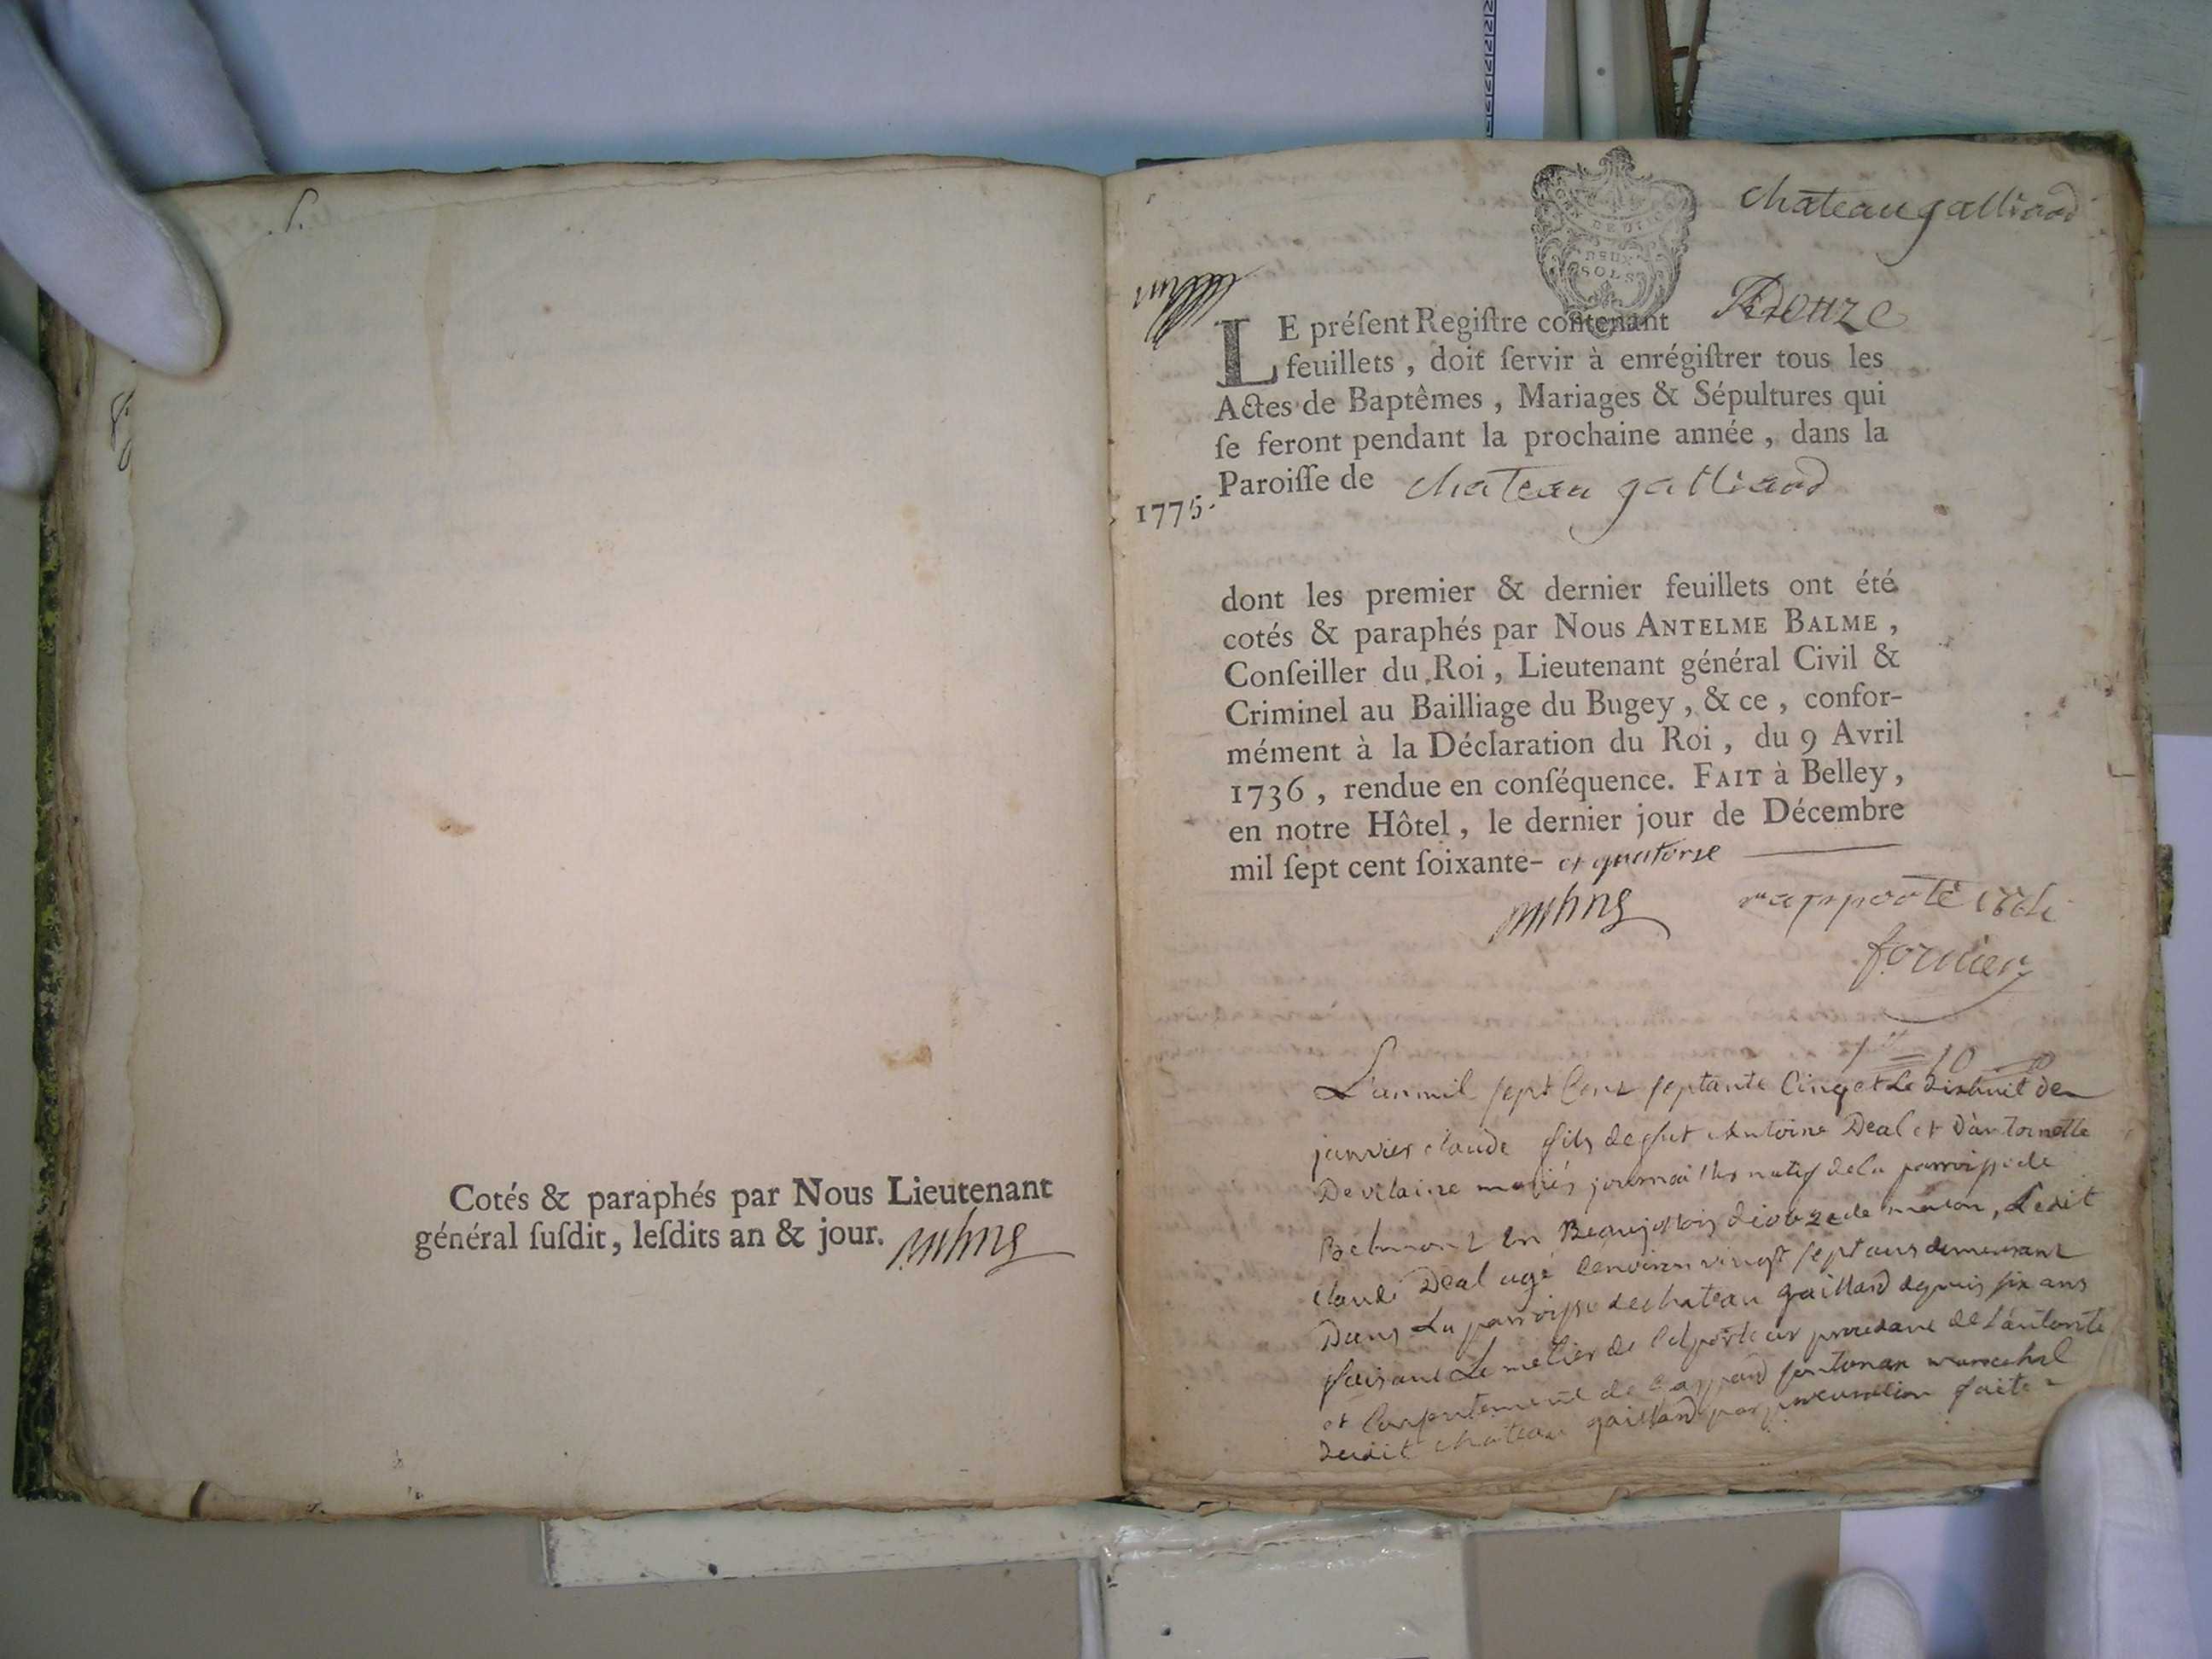 Cotés & paraphés par Nous Lieutenant
général ſuſdit, leſdits an & jour.
chateau galliard
DEUX
SOLS
LE préſent Regiſtre contenant
feuillets, doit ſervir à enrégiſtrer tous les
Actes de Baptêmes, Mariages & Sépultures qui
ſe feront pendant la prochaine année, dans la
Paroiſſe de chateau galliard
1775.
dont les premier & dernier feuillets ont été
cotés & paraphés par Nous ANTELME BALME,
Conſeiller du Roi, Lieutenant général Civil &
Criminel au Bailliage du Bugey, & ce, confor-
mément à la Déclaration du Roi, du 9 Avril
1736, rendue en conſéquence. FAIT à Belley,
en notre Hôtel, le dernier jour de Décembre
mil ſept cent ſoixante- et quatorse
rapporté
L'an mil sept Cent septante Cinq et Le dixhuit de
janvier claude fils de fut Antoine Deal et D'antoinette
De vilaine mariés natif de la parroisse de
Belmont en Beaujollois de macon, Ledit
claude Deal agé denviron vingt sept ans demeurant
Dans La parroisse de chateau gaillard depuis six ans
faisant Le metier de Colporteur procedant de L'autorité
et de marechal
Dudit chateau gaillard par procuration faite